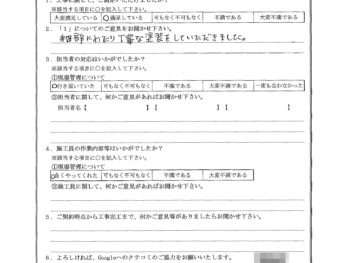 ※該当する項目に○を記入して下さい。
大変満足している ○満足している 可もなく不可もなく 不満である 大変不満である
2．「1」についてのご意見をお聞かせ下さい。
細部にわたり丁寧な塗装をしていただきました。
3．担当者の対応はいかがでしたか？
※該当する項目に○を記入して下さい。
①現場管理について
○行き届いていた 可もなく不可もなく 不満である 大変不満である 一度も会わなかった
②担当者に関して、何かご意見があればお聞かせ下さい。
担当者名【 】【 】【 】
4．施工員の作業内容等はいかがでしたか？
※該当する項目に○を記入して下さい。
①現場管理について
○良くやってくれた 可もなく不可もなく 不満である 大変不満である
②施工員に関して、何かご意見があればお聞かせ下さい。
5．ご契約時点から工事完工まで、何かご意見等がありましたらお聞かせ下さい。
6．よろしければ、Googleへのクチコミのご協力をお願いいたします。